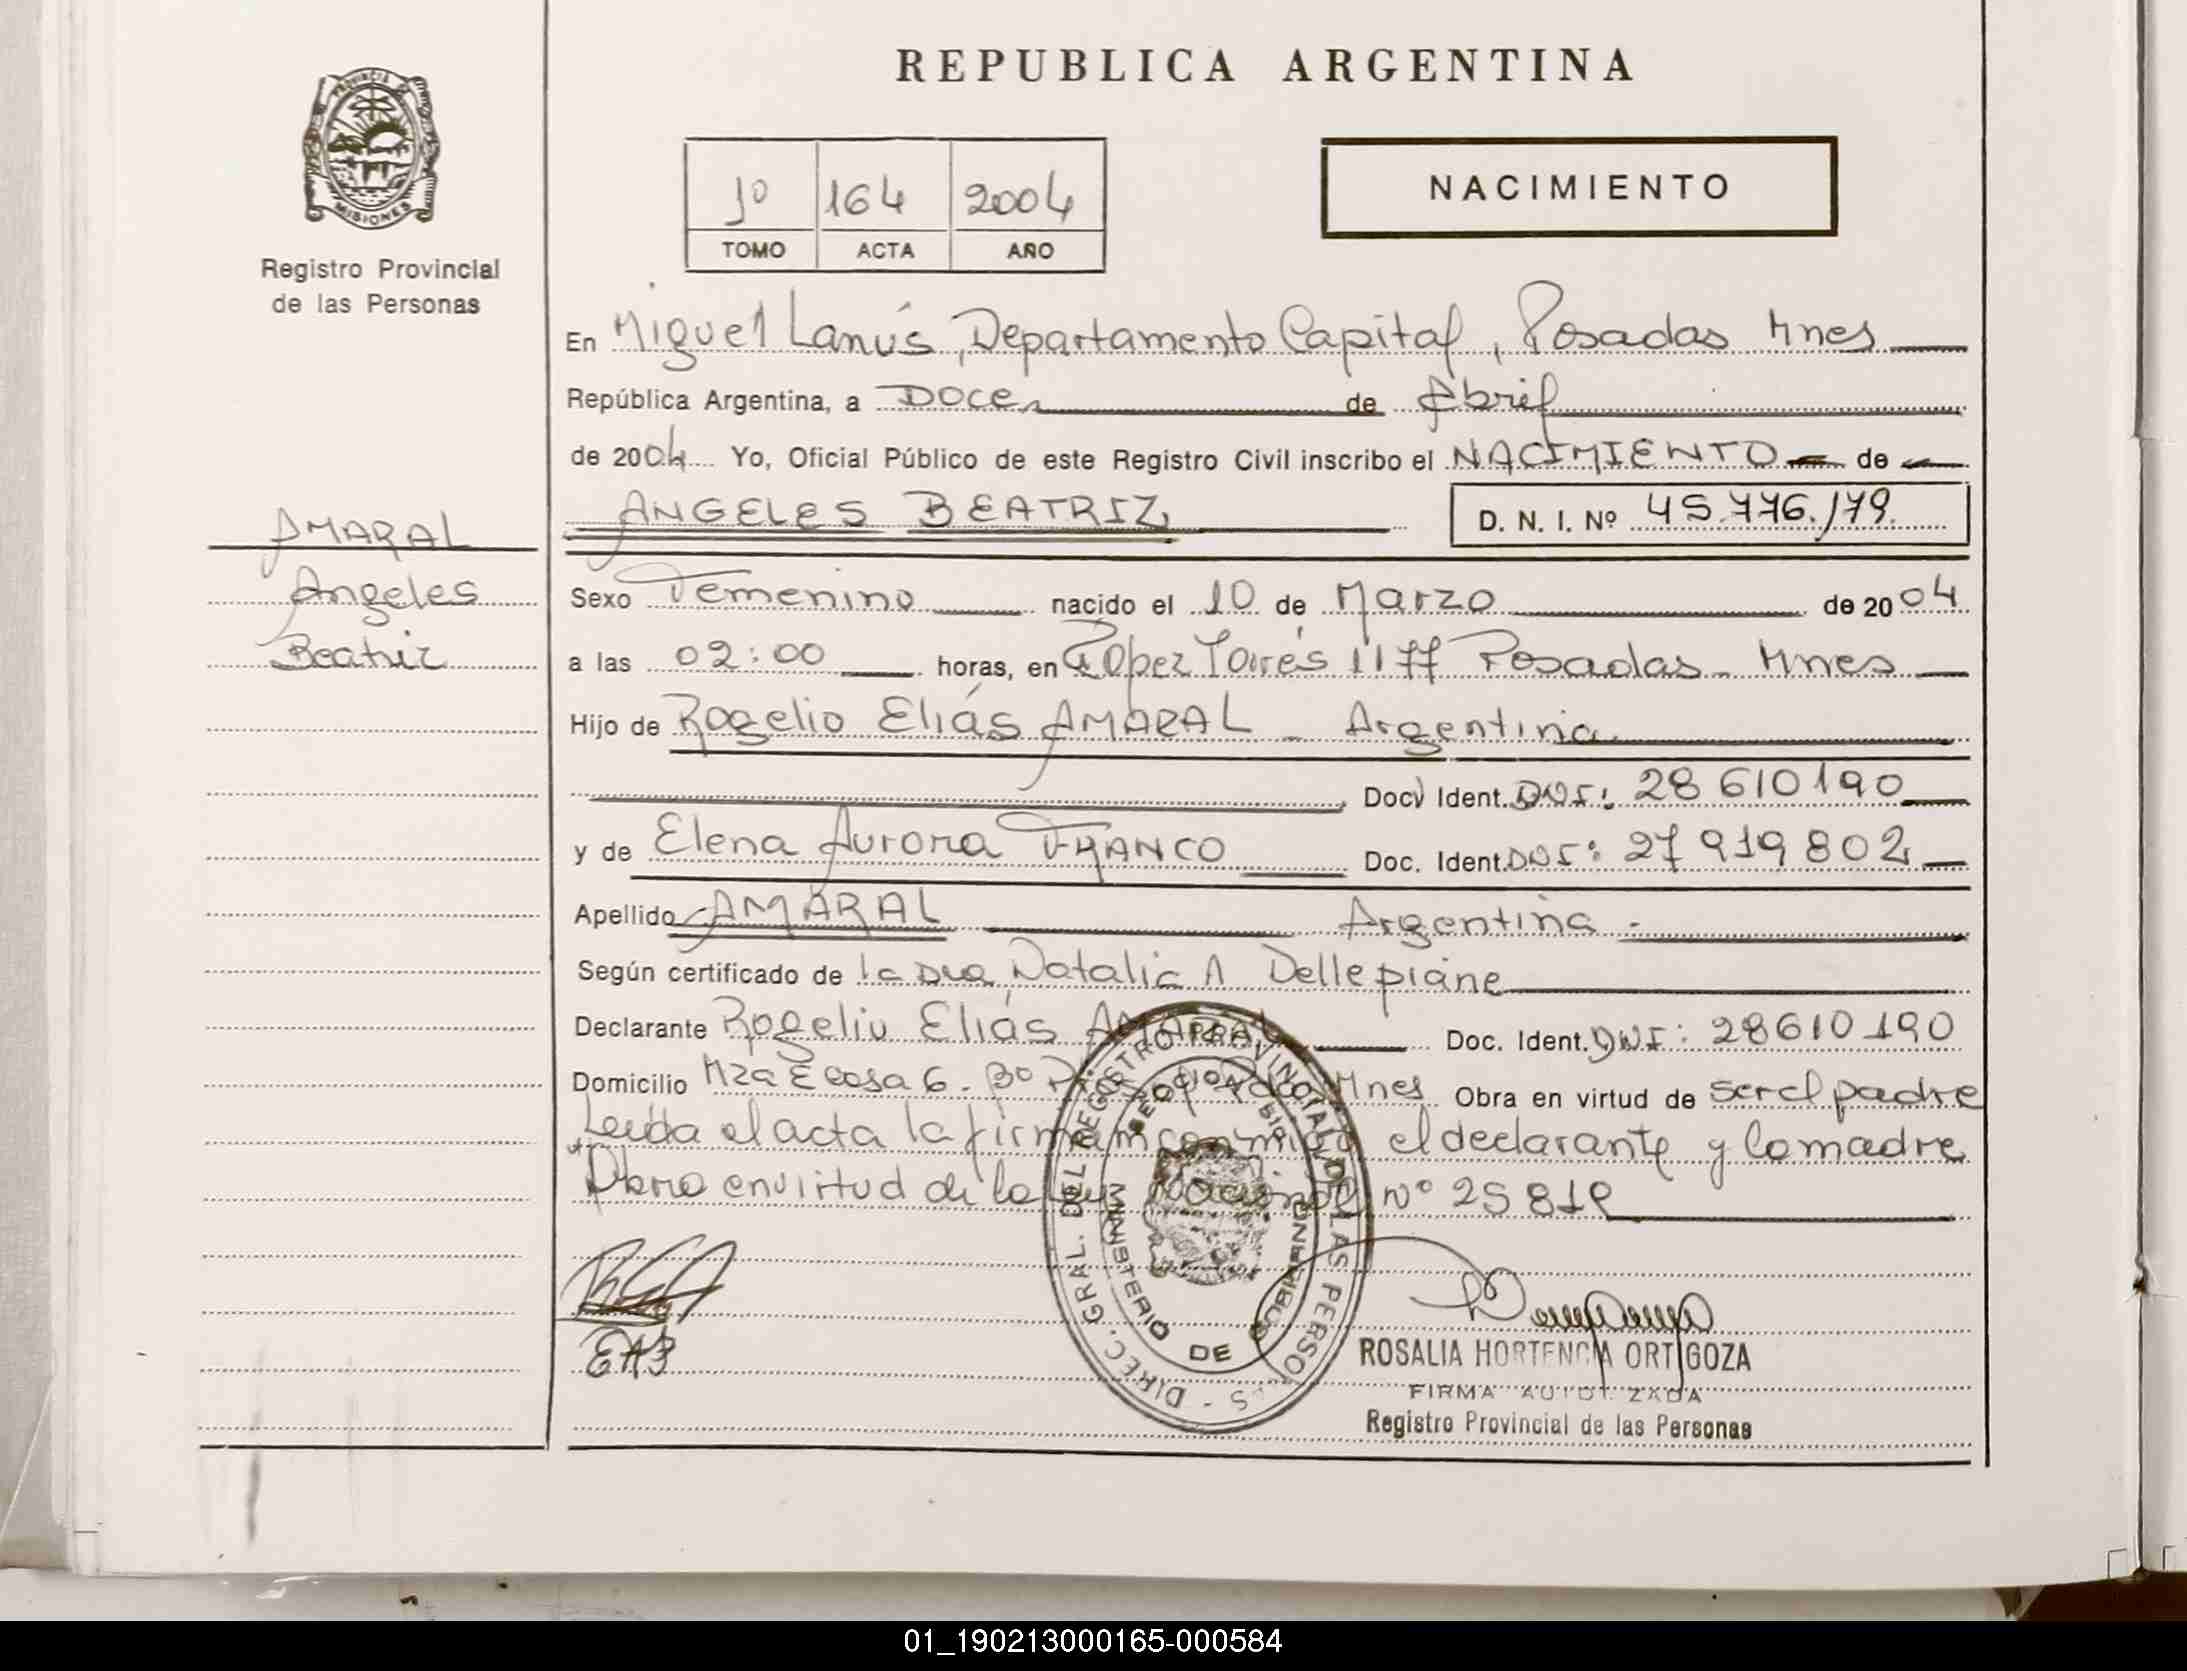 REPUBLICA ARGENTINA
PROVINCIA DE
MISIONES
Registro Provincial
de las Personas
1º 164 2004
TOMO ACTA AÑO
NACIMIENTO
En Miguel Lanús, Departamento Capital, Posadas Mnes
República Argentina, a Doce de Abril
de 2004 Yo, Oficial Público de este Registro Civil inscribo el NACIMIENTO de
ANGELES BEATRIZ D. N. I. Nº 45.776.179.
AMARAL
Angeles
Beatriz
Sexo Femenino nacido el 10 de Marzo de 2004
a las 02:00 horas, en López Torres 1177 Posadas - Mnes
Hijo de Rogelio Elías AMARAL - Argentina
Doc. Ident. DNI: 28 610 190
y de Elena Aurora FRANCO Doc. Ident. DNI: 27 919 802
Apellido AMARAL Argentina -
Según certificado de la Dra Natalia A Dellepiane
Declarante Rogelio Elías AMARAL Doc. Ident. DNI: 28610190
Domicilio Mza E casa 6 - Bº Mnes Obra en virtud de ser el padre
Leída el acta la firman conmigo el declarante y la madre
Obra en virtud de la Ley Nacional Nº 25 818
DIREC. GRAL. DEL REGISTRO PROVINCIAL DE LAS PERSONAS
MINISTERIO DE GOBIERNO
EAF
ROSALIA HORTENCIA ORTIGOZA
FIRMA AUTORIZADA
Registro Provincial de las Personas
01_190213000165-000584